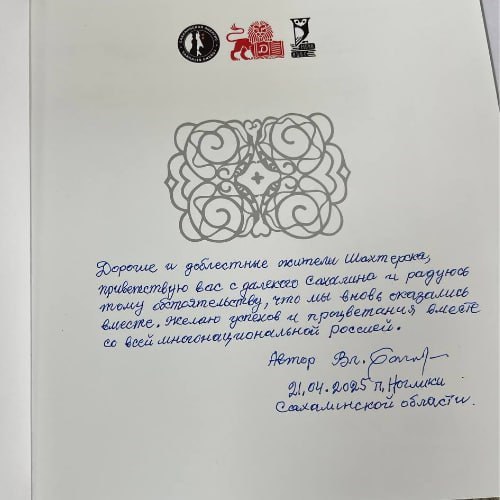 Дорогие и доблестные жители Шахтерска,
приветствую вас с далекого Сахалина и радуюсь
тому обстоятельству, что мы вновь оказались
вместе. Желаю успехов и процветания вместе
со всей многонациональной Россией.
Автор Вл.
21.04.2025 п. Ноглики
Сахалинской области.